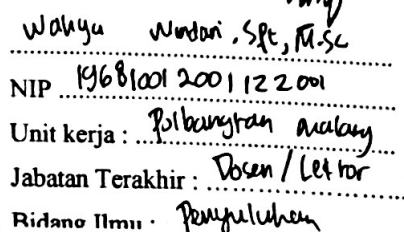 Wahyu Windari, Spt, M.Sc
NIP 196810012001122001
Unit kerja : Polbangtan Malang
Jabatan Terakhir : Dosen / Lektor
Bidang Ilmu : Penyuluhan